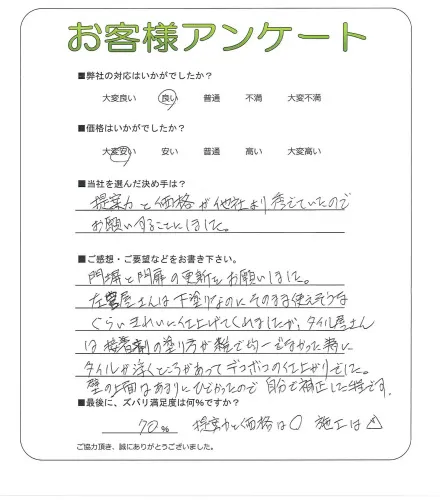 お客様アンケート
■弊社の対応はいかがでしたか?
大変良い 良い 普通 不満 大変不満
■価格はいかがでしたか?
大変安い 安い 普通 高い 大変高い
■当社を選んだ決め手は?
提案力と価格が他社より秀でていたので
お願いすることにしました。
■ご感想・ご要望などをお書き下さい。
門塀と門扉の更新をお願いしました。
左官屋さんは下塗りなのにそのまま使えそうな
ぐらいきれいに仕上げてくれましたが、タイル屋さん
は接着剤の塗り方が雑で均一でなかった為に
タイルが浮くところがあってデコボコの仕上がりでした。
壁の上面はあまりにひどかったので自分で補正した程です。
■最後に、ズバリ満足度は何%ですか?
70% 提案力と価格は○ 施工は△
ご協力頂き、誠にありがとうございました。